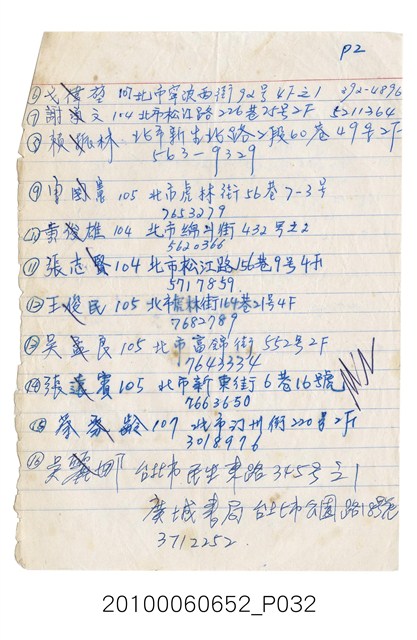 P2
⑥ 偉 107 北市寧波西街92号4F之1 392-4896
⑦ 謝 文 104 北市松江路226巷25号2F 5211364
⑧ 賴 林 北市新生北路2段60巷49号2F
563-9329
⑨ 105 北市虎林街56巷7-3号
7653279
俊雄 104 北市錦州街432号之2
5620366
⑪ 張志賢 104 北市松江路156巷9号4F
5717859
⑫ 王俊民 105 北市虎林街164巷21号4F
7682789
⑬ 吳孟良 105 北市富錦街552号2F
7643334
⑭ 張 賓 105 北市新東街6巷16號
7663650
⑮ 齡 107 北市汀州街220号2F
3018976
⑯ 吳麗娜 台北市民生東路345号之1
廣城書局 台北市公園路18號
3712252